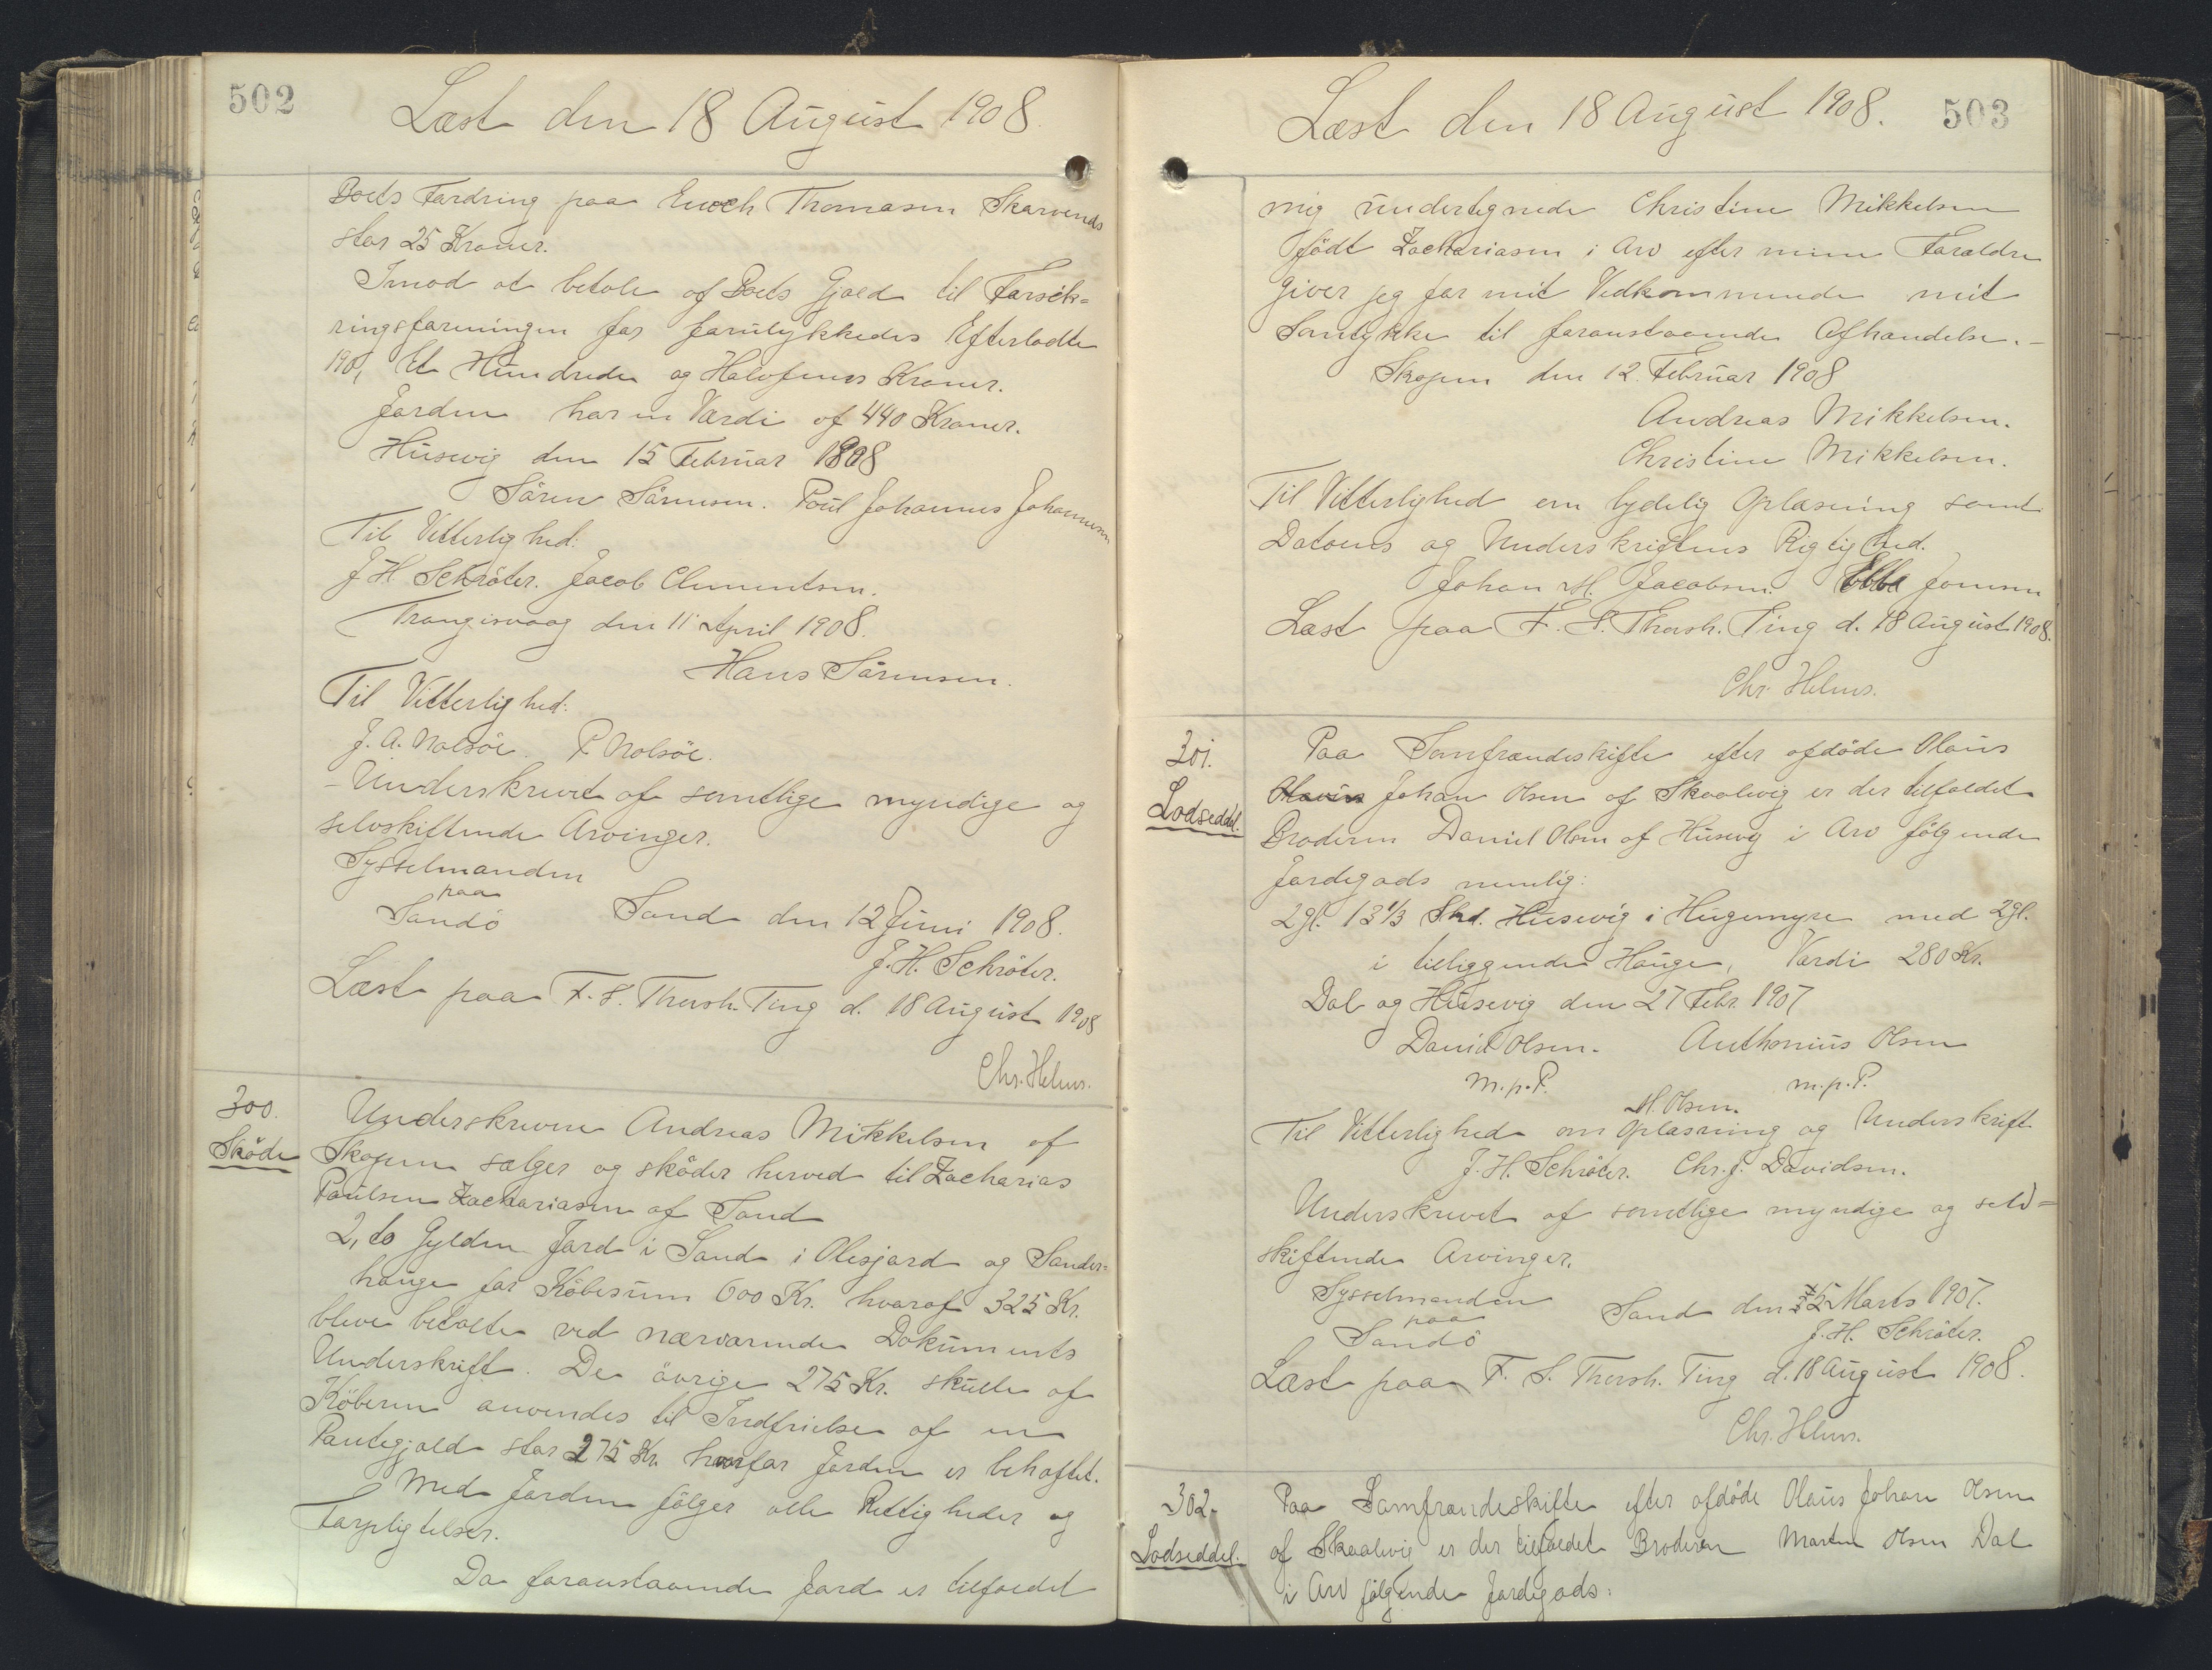 502
Læst den 18 August 1908.
Boets Fordring paa Enoch Thomasen Skarvends
stor 25 Kroner.
Imod at betale af Boets Gjæld til Forsik=
ringsforeningen for forulykkedes Efterladte
190, Et Hundrede og Halvfems Kroner.
Jorden har en Værdi af 440 Kroner.
Husevig den 15 Februar 1908
Sören Sörensen. Poul Johannes Johannesen
Til Vitterlighed:
J H Schröter. Jacob Clementsen.
Trangisvaag den 11 April 1908.
Hans Sörensen.
Til Vitterlighed:
J. A. Nolsöe. P. Nolsöe.
- Underskrevet af samtlige myndige og
selvskiftende Arvinger.
Sysselmanden
paa
Sandö
Sand den 12 Juni 1908.
J. H. Schröter.
Læst paa F. S. Thorsh. Ting d. 18 August 1908
Chr. Helms.
300.
Sköde
Underskrevne Andreas Mikkelsen af
Skopen sælger og sköder herved til Zacharias
Poulsen Zachariasen af Sand
2, to Gylden Jord i Sand i Olesjord og Sonder=
hauge for Köbesum 600 Kr. hvoraf 325 Kr.
bleve betalte ved nærværende Dokuments
Underskrift. De övrige 275 Kr. skulle af
Köberen anvendes til Indfrielse af en
Pantegjæld stor 275 Kr. hvorfor Jorden er behæftet.
Med Jorden fölger alle Rettigheder og
Forpligtelser.
Da foranstaaende Jord er tilfaldet
Læst den 18 August 1908.
503
mig undertegnede Christine Mikkelsen
födt Zachariasen i Arv efter mine Forældre
giver jeg for mit Vedkommende mit
Samtykke til foranstaaende Afhændelse. -
Skopen den 12. Februar 1908
Andreas Mikkelsen.
Christine Mikkelsen.
Til Vitterlighed om lydelig Oplæsning samt
Datoens og Underskriftens Rigtighed.
Johan M. Jacobsen. Ebba Joensen
Læst paa F. S. Thorsh. Ting d. 18 August 1908.
Chr. Helms.
301.
Lodseddel.
Paa Samfrændeskifte efter afdöde Olaus
Olavus Johan Olsen af Skaalevig er der tilfaldet
Broderen Daniel Olsen af Husevig i Arv fölgende
Jordegods nemlig:
2 gl. 13 1/3 Skd. Husevig i Hugemyre med 2 gl.
i tilliggende Hauge, Værdi 280 Kr.
Dal og Husevig den 27 Febr. 1907
Daniel Olsen. Anthonius Olsen
m. p. P. m. p. P.
M. Olsen.
Til Vitterlighed om Oplæsning og Underskrift
J. H. Schröter. Chr. J. Davidsen.
Underskrevet af samtlige myndige og selv=
skiftende Arvinger.
Sysselmanden
paa
Sandö
Sand den 5 Marts 1907.
J. H. Schröter.
Læst paa F. S. Thorsh. Ting d. 18 August 1908.
Chr. Helms.
302.
Lodseddel.
Paa Samfrændeskifte efter afdöde Olaus Johan Olsen
af Skaalevig er der tilfaldet Broderen Morten Olsen Dal
i Arv fölgende Jordegods: